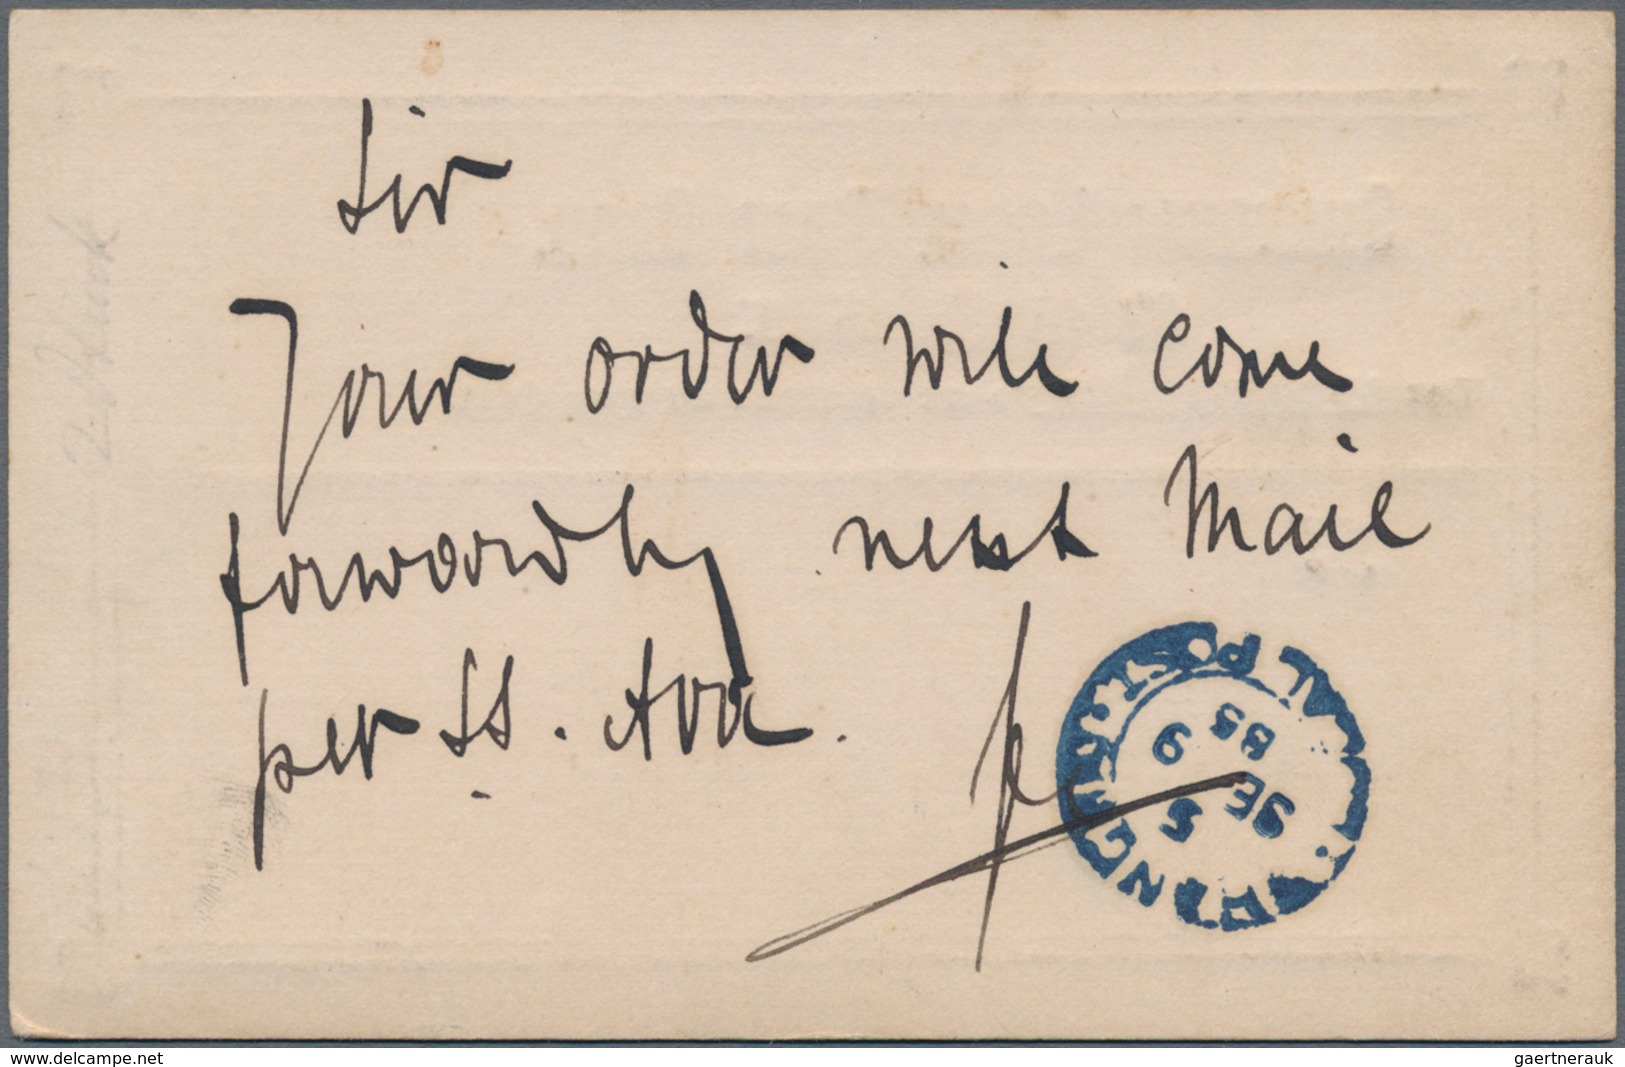 Sir
Your order will come
forwardly next Mail
per SS. Ava.
POSTA
9
85
SE
5
www.delcampe.net
gaertnerauk